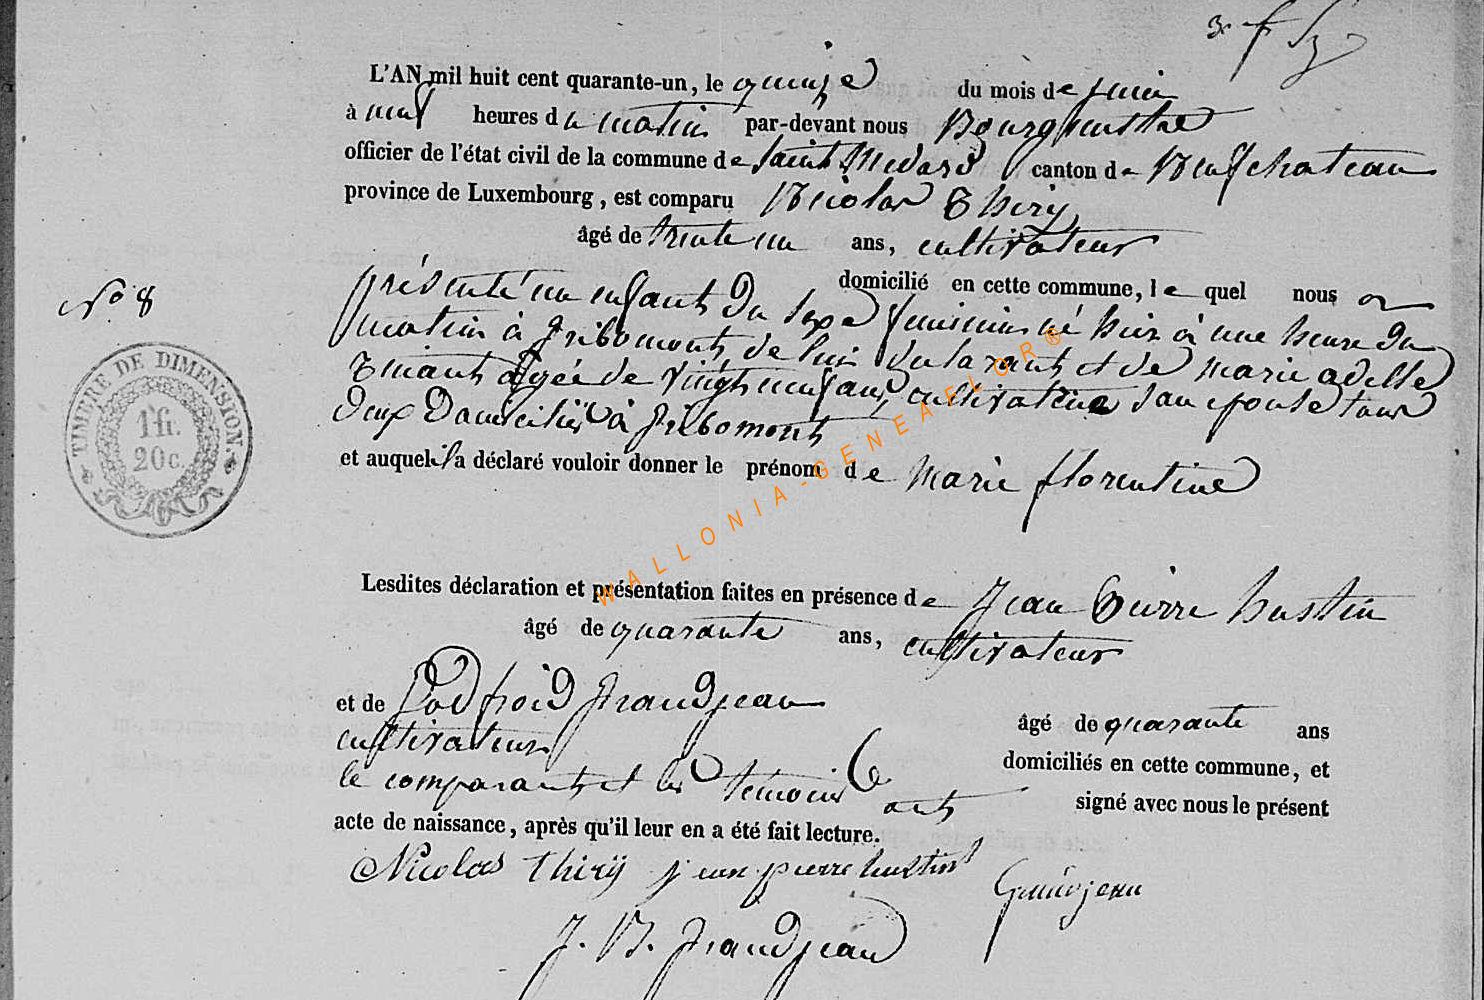 L'AN mil huit cent quarante-un, le quinze du mois de juin
à neuf heures du matin par-devant nous Bourgmestre
officier de l'état civil de la commune de Saint Medard canton de Neufchateau
province de Luxembourg, est comparu Nicolas Thiry
âgé de trente un ans, cultivateur
domicilié en cette commune, le quel nous a
présenté un enfant du sexe feminin né hier à une heure du
matin à fribomont, de lui declarant et de marie adelle
Tinant agée de vingt neuf ans, cultivatrice son epouse tous
deux domiciliés à fribomont
et auquel il a déclaré vouloir donner le prénom de Marie florentine
Lesdites déclaration et présentation faites en présence de Jean Pierre hustin
âgé de quarante ans, cultivateur
et de Godfroid Grandjean âgé de quarante ans
cultivateur domiciliés en cette commune, et
le comparant et les temoins ont signé avec nous le présent
acte de naissance, après qu'il leur en a été fait lecture.
Nicolas thiry jean pierre hustin Grandjean
J. B. Grandjean
No 8
TIMBRE DE DIMENSION
1 fr.
20 c.
WALLONIA-GENEAFLOR®